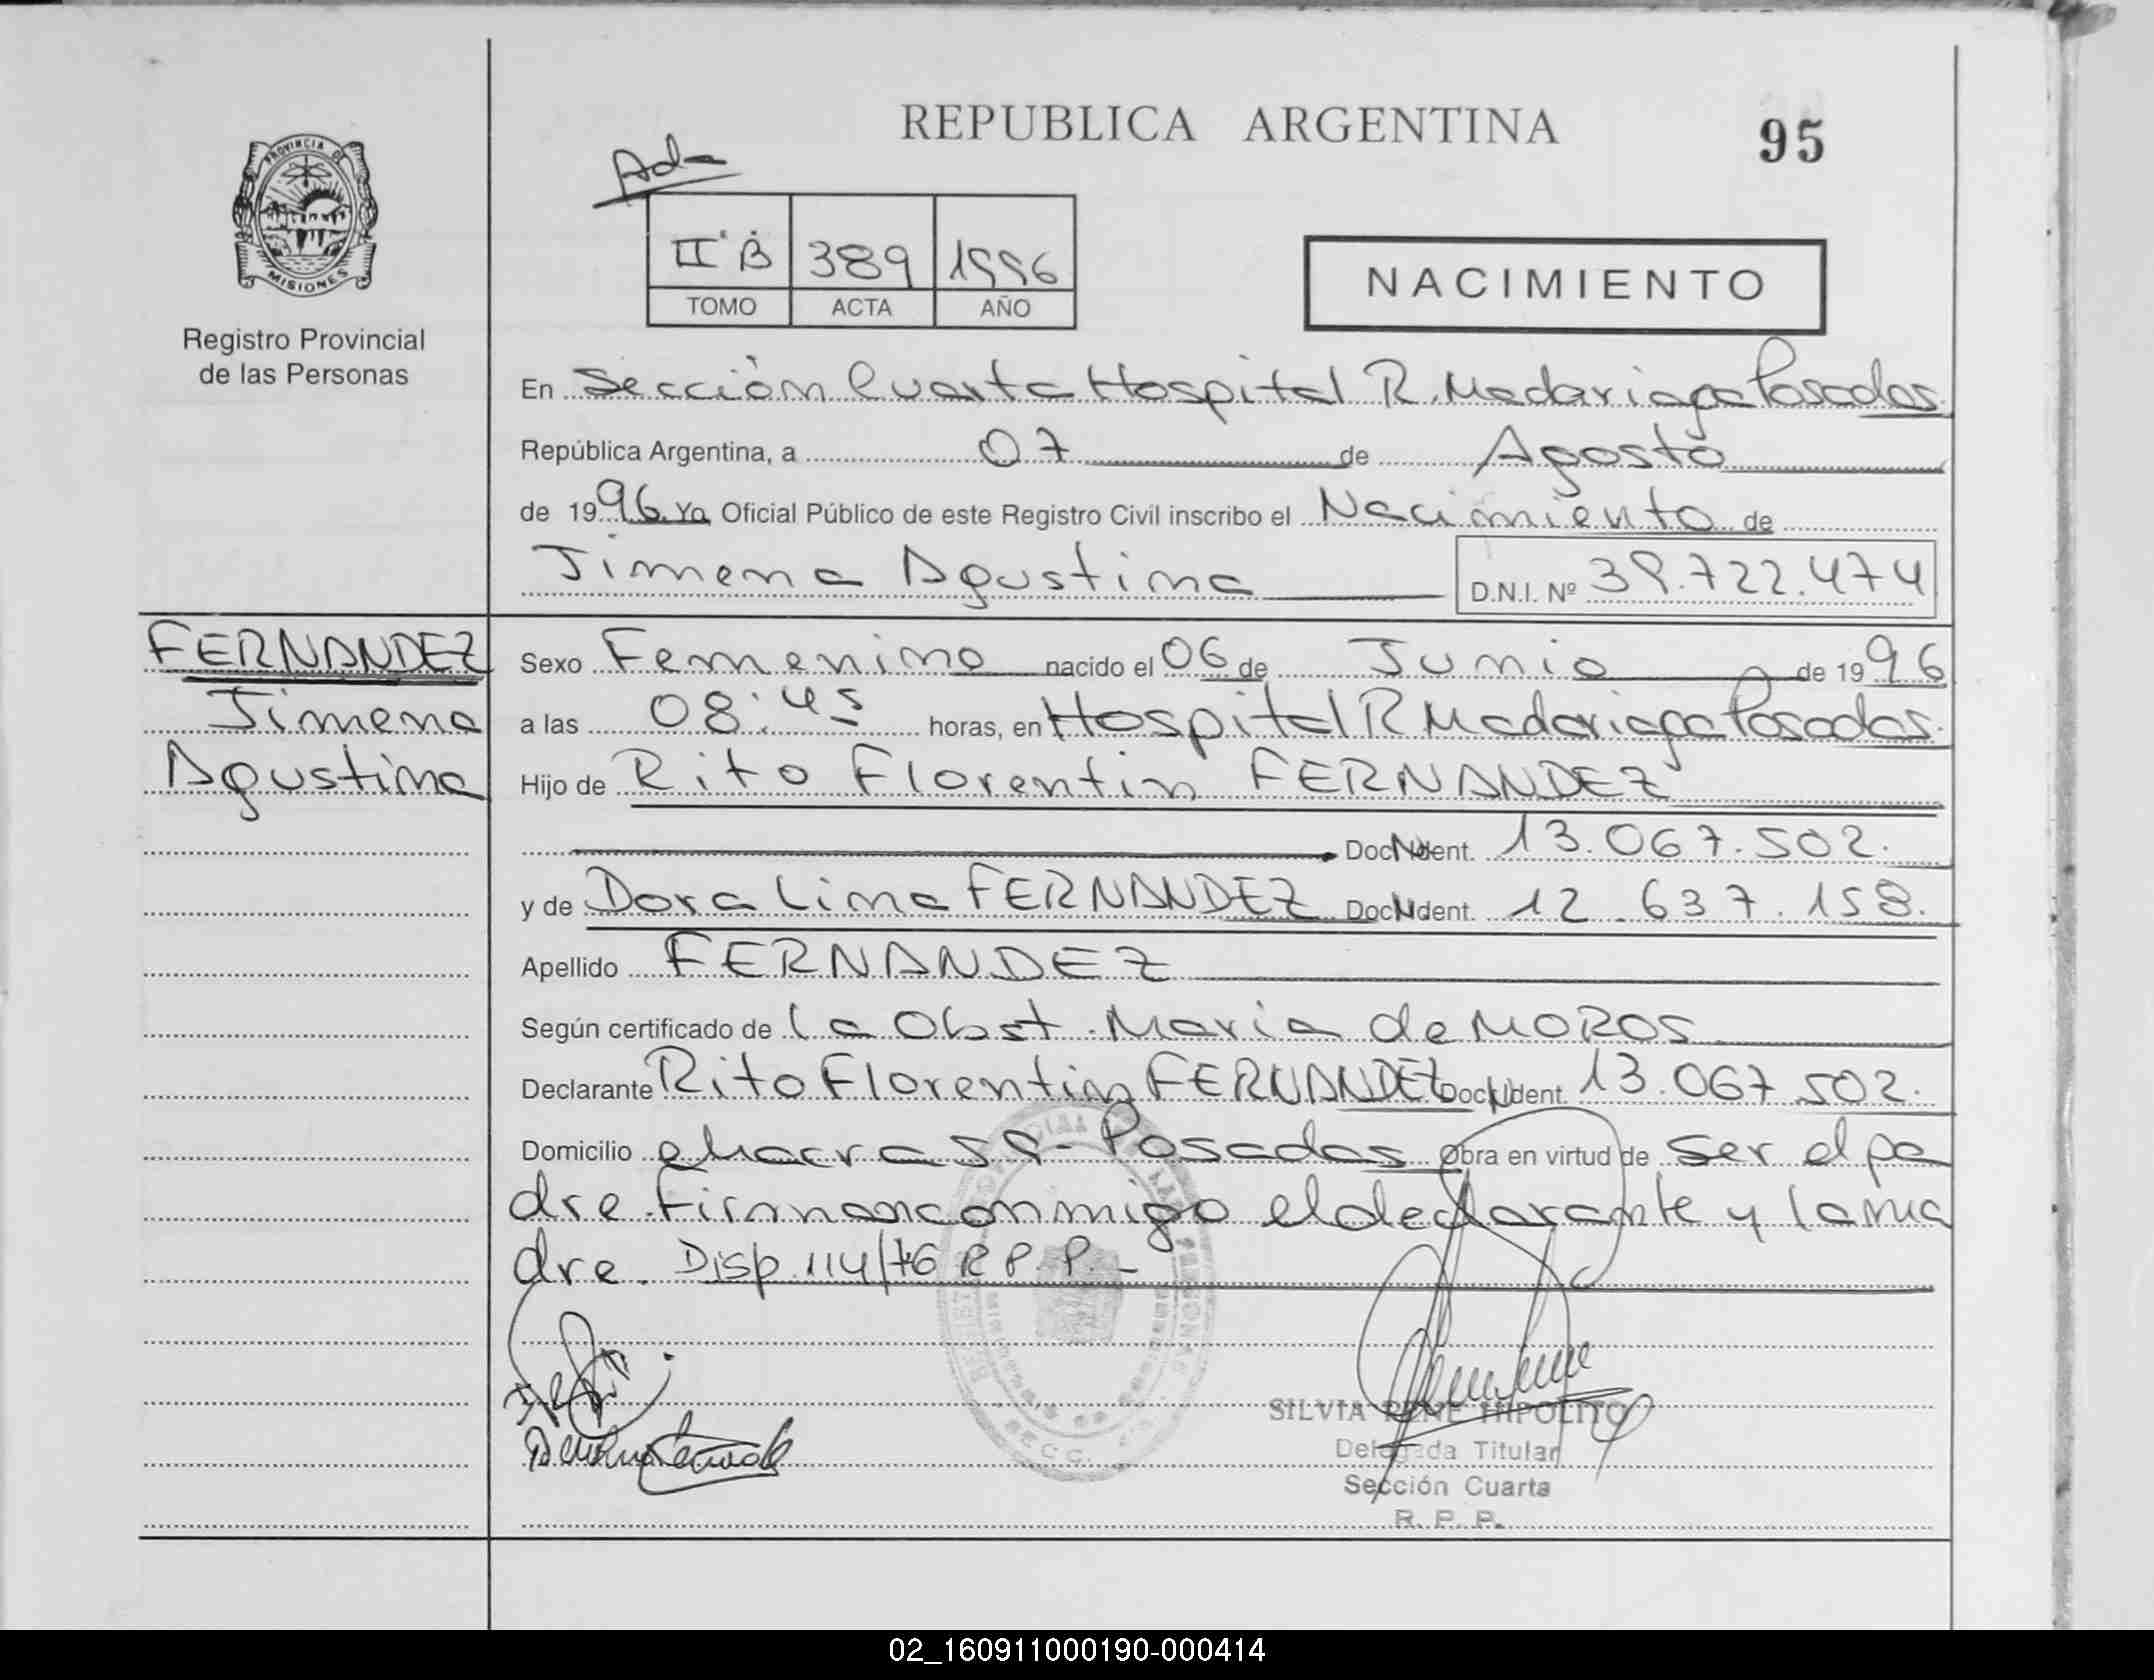 REPUBLICA ARGENTINA
95
PROVINCIA DE
MISIONES
Registro Provincial
de las Personas
II B 389 1996
TOMO ACTA AÑO
NACIMIENTO
En Sección Cuarta Hospital R. Madariaga Posadas
República Argentina, a 07 de Agosto
de 1996 Yo Oficial Público de este Registro Civil inscribo el Nacimiento de
Jimena Agustina D.N.I. Nº 39.722.474
FERNANDEZ
Jimena
Agustina
Sexo Femenino nacido el 06 de Junio de 1996
a las 08:45 horas, en Hospital R Madariaga Posadas.
Hijo de Rito Florentin FERNANDEZ
Doc Ident. 13.067.502.
y de Dora Lina FERNANDEZ Doc Ident. 12.637.158.
Apellido FERNANDEZ
Según certificado de la Obst. Maria de MOROS
Declarante Rito Florentin FERNANDEZ Doc Ident. 13.067.502.
Domicilio chacra 59 - Posadas Obra en virtud de ser el pa
dre. Firman conmigo el declarante y la ma
dre. Disp. 114/76 R.P.P. -
SILVIA RENE HIPOLITO
Delegada Titular
Sección Cuarta
R. P. P.
02_160911000190-000414